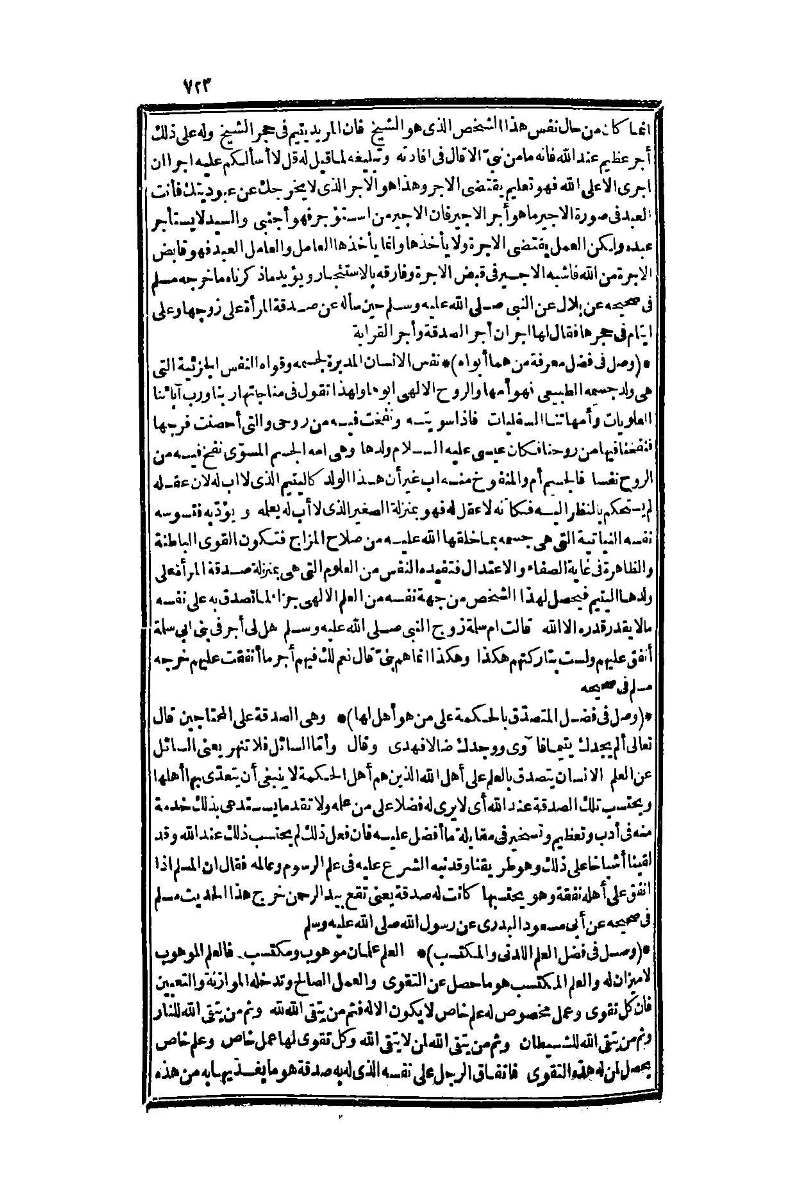 ٧٢٣
انما كان من حال نفس هذا الشخص الذى هو الشيخ فان المريد يتيم فى حجر الشيخ وله على ذلك
أجر عظيم عند الله فانه ما من نبىّ الا قال فى افادته وتبليغه لما قيل له قل لا أسألكم عليه اجرا ان
اجرى الا على الله فهو تعليم يقتضى الاجر وهذا هو الأجر الذى لا يخرجك عن عبوديتك فأنت
العبد فى صورة الاجير ما هو أجر الاجير فان الاجير من استؤجر فهو أجنبى والسيد لا يستأجر
عبده ولكن العمل يقتضى الاجرة ولا يأخذها وانما يأخذها العامل والعامل العبد فهو قابض
الاجرة من الله فاشبه الاجير فى قبض الاجرة وفارقه بالاستئجار ويؤيد ما ذكرناه ما خرجه مسلم
فى صحيحه عن بلال عن النبى صلى الله عليه وسلم حين سأله عن صدقة المرأة على زوجها وعلى
ايتام فى حجرها فقال لها اجران أجر الصدقة وأجر القرابة
*(وصل فى فضل معرفة من هما أبواه)* نفس الانسان المدبرة لجسمه وقواه النفس الجزئية التى
هى ولد جسمه الطبيعى فهو أمها والروح الالهى ابوها ولهذا تقول فى مناجاتها ربنا ورب آبائنا
العلويات وأمهاتنا السفليات فاذا سويته ونفخت فيه من روحى والتى أحصنت فرجها
فنفخنا فيها من روحنا فكان عيسى عليه السلام ولدها وهى امه الجسم المسوّى نفخ فيه من
الروح نفسا فالجسم أم والمنفوخ منه اب غير أن هذا الولد كاليتيم الذى لا اب له لان عقله
لم يستحكم بالنظر اليه فكانه لا عقل له فهو بمنزلة الصغير الذى لا أب له يعلمه ويؤدّبه فتسوسه
نفسه النباتية التى هى جسمه بما خلقها الله عليه من صلاح المزاج فتكون القوى الباطنة
والظاهرة فى غاية الصفاء والاعتدال فتفيده النفس من العلوم التى هى بمنزلة صدقة المرأة على
ولدها اليتيم فيحصل لهذا الشخص من جهة نفسه من العلم الالهى جزاء لما تصدق به على نفسه
ما لا يقدر قدره الا الله قالت ام سلة زوج النبى صلى الله عليه وسلم هل لى أجر فى بنى ابى سلة
أنفق عليهم ولست بتاركتهم هكذا وهكذا انما هم بنىّ قال نعم لك فيهم أجر ما أنفقت عليهم خرجه
مسلم فى صحيحه
*(وصل فى فضل المتصدّق بالحكمة على من هو أهل لها)* وهى الصدقة على المحتاجين قال
تعالى ألم يجدك يتيما فآوى ووجدك ضالا فهدى وقال وأمّا السائل فلا تنهر يعنى السائل
عن العلم الانسان يتصدق بالعلم على أهل الله الذين هم أهل الحكمة لا ينبغى أن يتعدّى بها أهلها
ويحتسب تلك الصدقة عند الله أى لا يرى له فضلا على من علمه ولا تقدّما يستدعى بذلك خدمة
منه فى أدب وتعظيم وتسخير فى مقابلة ما أفضل عليه فان فعل ذلك لم يحتسب ذلك عند الله وقد
لقينا أشياخا على ذلك وهو طريقنا وقد نبه الشرع عليه فى علم الرسوم وعالمه فقال ان المسلم اذا
انفق على أهله نفقة وهو يحتسبها كانت له صدقة يعنى تقع بيد الرحمن خرج هذا الحديث مسلم
فى صحيحه عن أبى مسعود البدرى عن رسول الله صلى الله عليه وسلم
*(وصل فى فضل العلم اللدنى والمكتسب)* العلم علمان موهوب ومكتسب فالعلم الموهوب
لا ميزان له والعلم المكتسب هو ما حصل عن التقوى والعمل الصالح وتدخله الموازنة والتعيين
فان كل تقوى وعمل مخصوص له علم خاص لا يكون الا له فثم من يتقى الله لله وثم من يتقى الله للنار
وثم من يتقى الله للشيطان وثم من يتقى الله لمن لا يتقى الله وكل تقوى لها عمل خاص وعلم خاص
يحصل لمن له هذه التقوى فانفاق الرجل على نفسه الذى له به صدقة هو ما يغذيها به من هذه